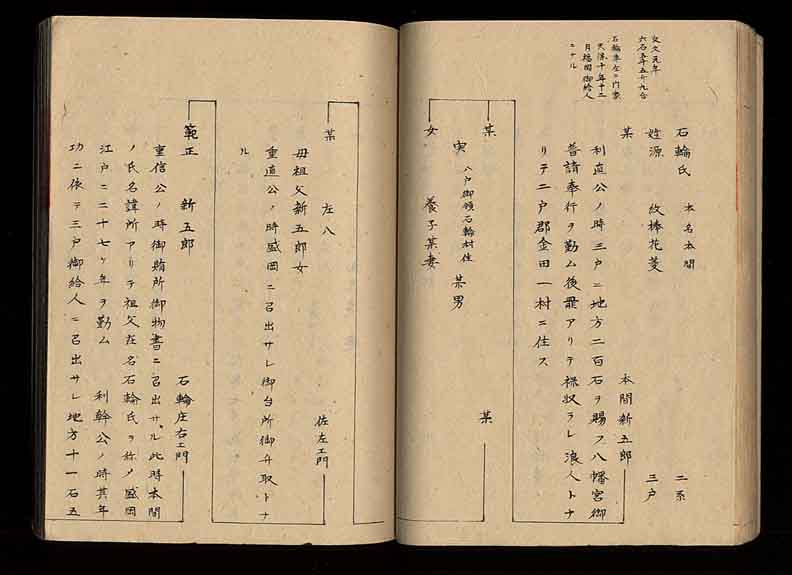 文久元年
六石五斗五升九合
石輪庄左エ門家
天保十年十二
月福岡御給人
ニナル
石輪氏 本名本間 二系
姓源 紋棒花菱 三戸
某 本間新五郎
利直公ノ時三戸ニ地方二百石ヲ賜フ八幡宮御
普請奉行ヲ勤ム後罪アリテ禄収ラレ浪人トナ
リテ二戸郡金田一村ニ住ス
某 某
実 八戸御領石輪村住 某男
女 養子某妻
某 左八 佐左エ門
母祖父新五郎女
重直公ノ時盛岡ニ召出サレ御台所御舛取トナ
ル
範正 新五郎 石輪庄右エ門
重信公ノ時御賄所御物書ニ召出サル此時本間
ノ氏名諱所アリテ祖父在名石輪氏ヲ称ノ盛岡
江戸ニ二十七ケ年ヲ勤ム 利幹公ノ時其年
功ニ依テ三戸御給人ニ召出サレ地方十一石五